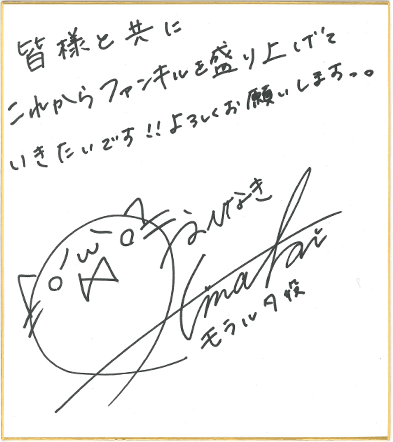 皆様と共に
これからファンキルを盛り上げて
いきたいです!!よろしくお願いしますっ。
モラルタ役